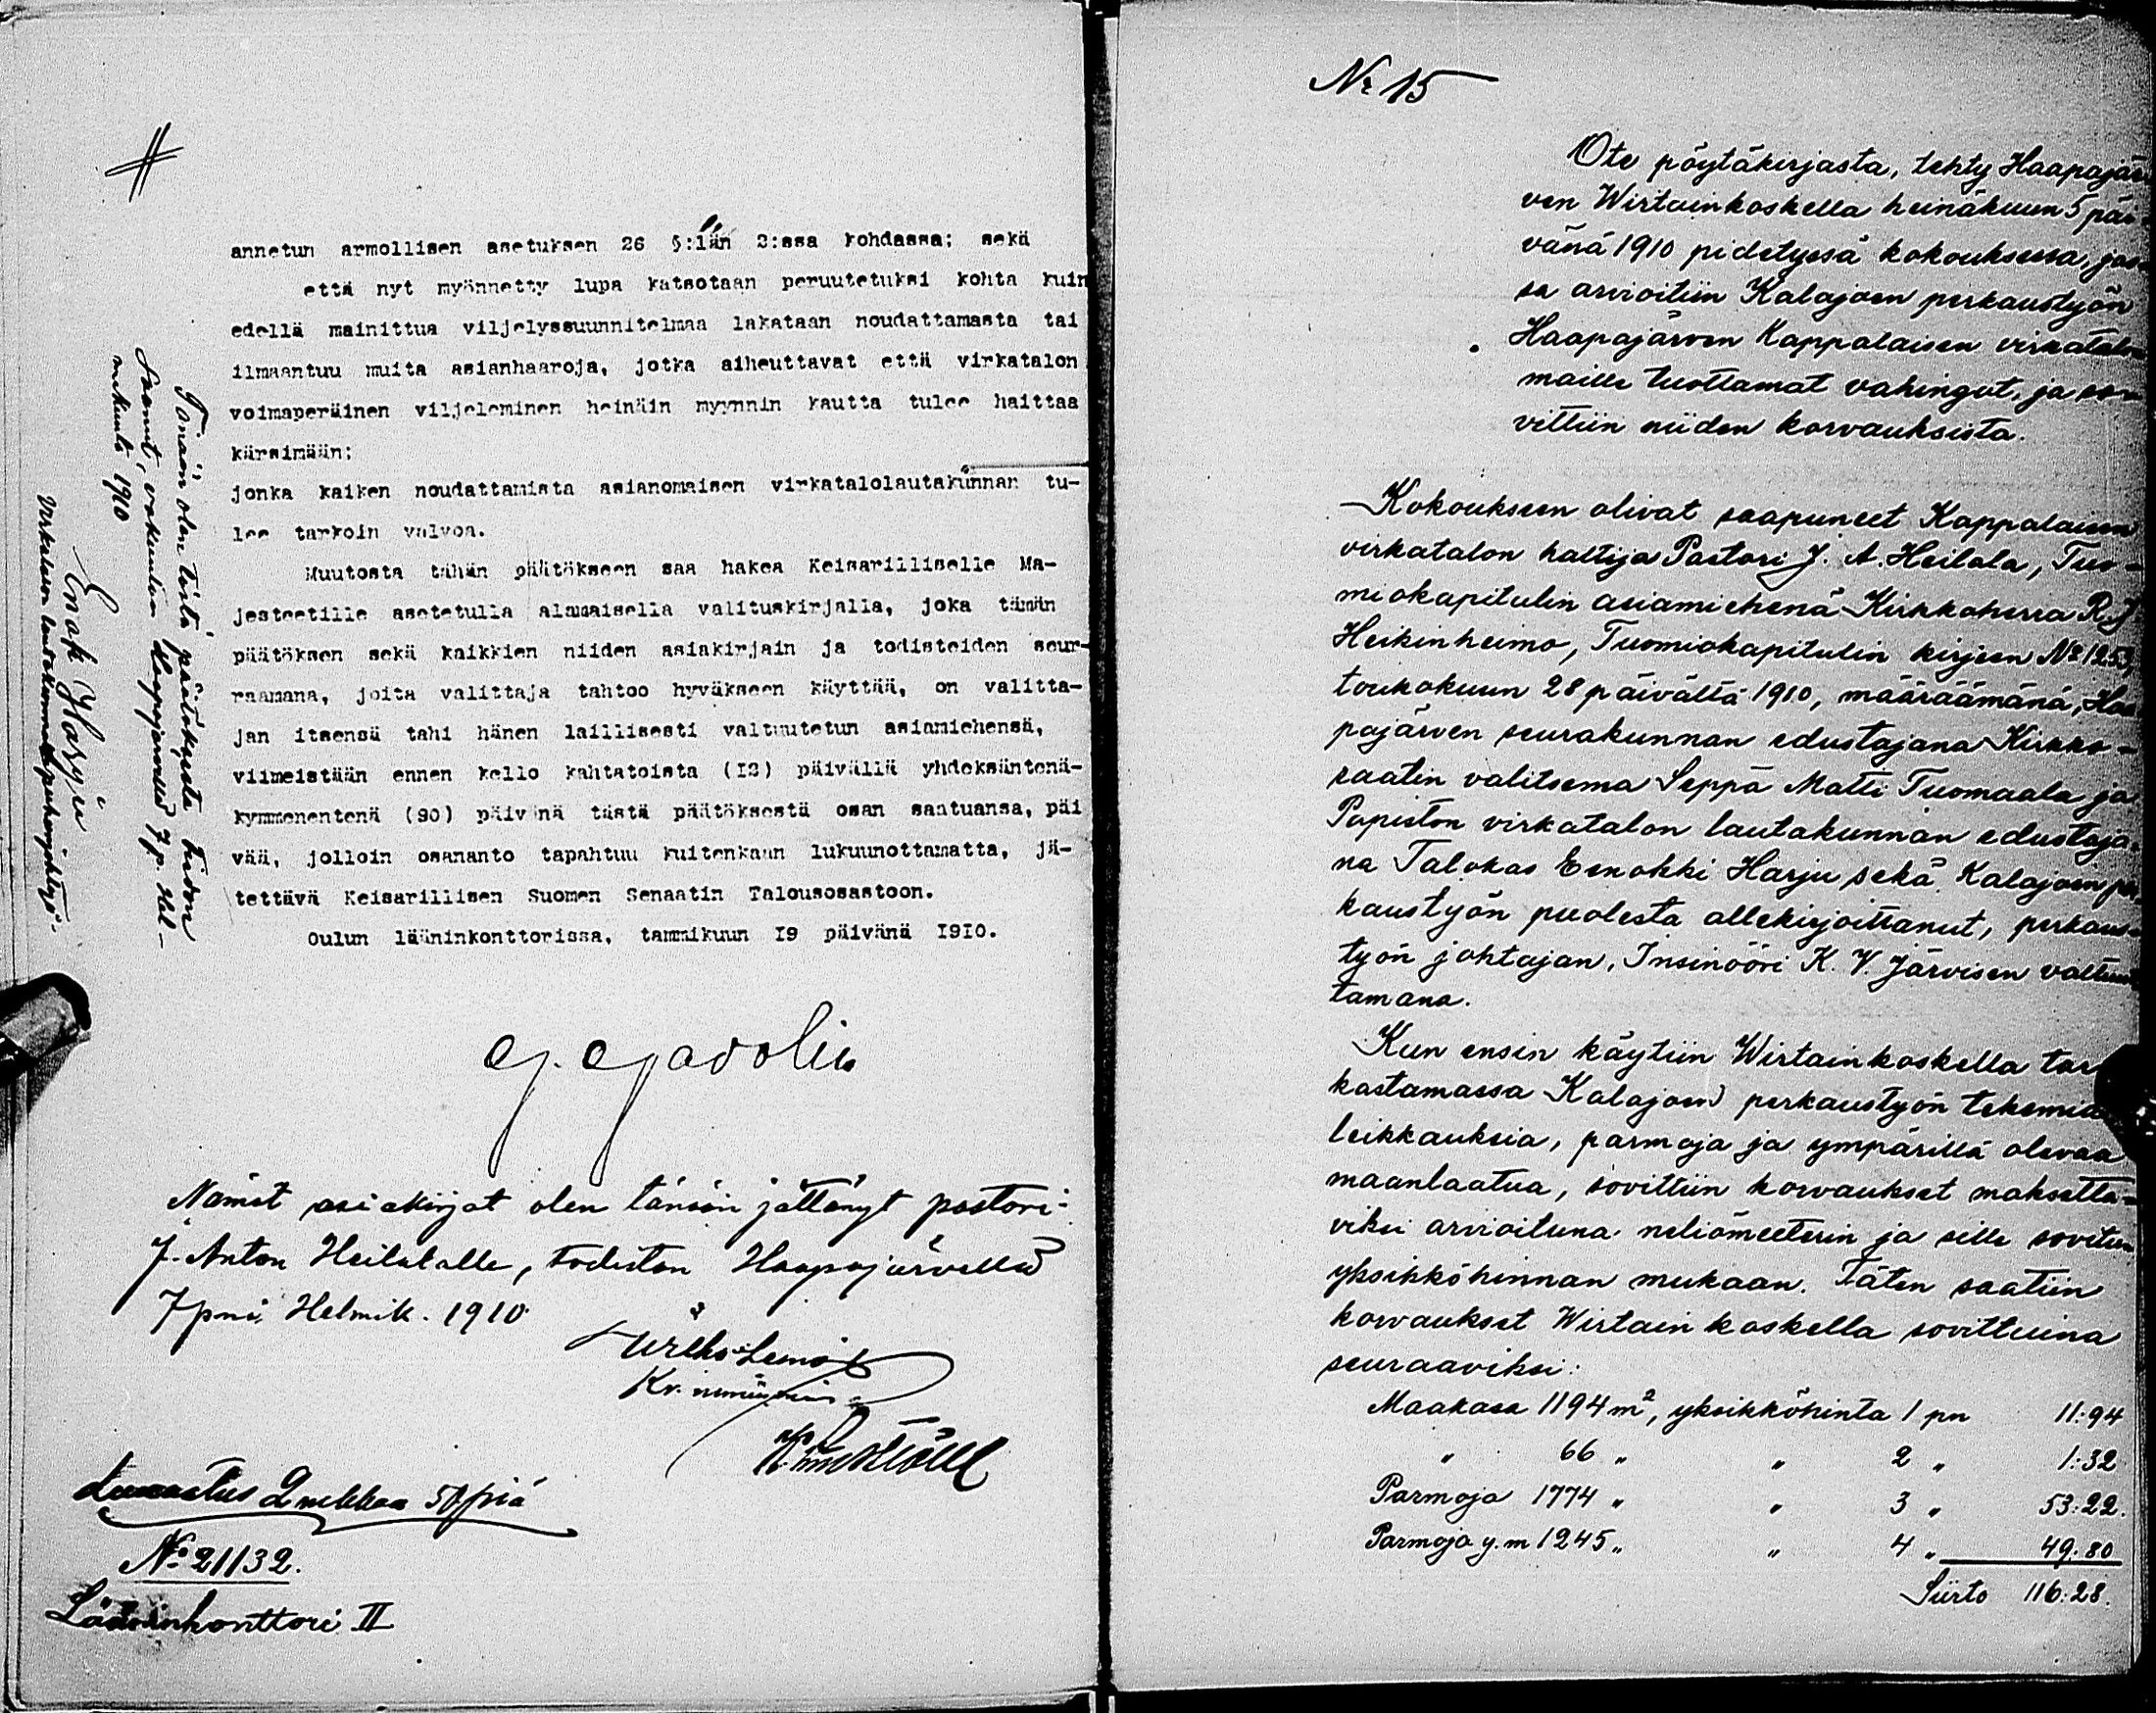 annetun armollisen asetuksen 26 §:län 2:ssa kohdassa; sekä
että nyt myönnetty lupa katsotaan peruutetuksi kohta kuin
edellä mainittua viljelyssuunnitelmaa lakataan noudattamasta tai
ilmaantuu muita asianhaaroja, jotka aiheuttavat että virkatalon
voimaperäinen viljeleminen heinäin myynnin kautta tulee haittaa
kärsimään;
jonka kaiken noudattamista asianomaisen virkatalolautakunnan tu-
lee tarkoin valvoa.
Muutosta tähän päätökseen saa hakea Keisarilliselle Ma-
jesteetille asetetulla alamaisella valituskirjalla, joka tämän
päätöksen sekä kaikkien niiden asiakirjain ja todisteiden seur-
raamana, joita valittaja tahtoo hyväkseen käyttää, on valitta-
jan itsensä tahi hänen laillisesti valtuutetun asiamiehensä,
viimeistään ennen kello kahtatoista (I2) päivällä yhdeksäntenä-
kymmenentenä (90) päivänä tästä päätöksestä osan saatuansa, päi
vää, jolloin osananto tapahtuu kuitenkaan lukuunottamatta, jä-
tettävä Keisarillisen Suomen Senaatin Talousosastoon.
Oulun lääninkonttorissa, tammikuun I9 päivänä I9I0.
Toinäin olen tästä päätöksestä tiedon
saanut, vakuutan Haapajärvellä 7 p. Hel-
mikuuta 1910
Enok Harju
Virkatalon lautakunnan puheenjohtaja
Nämät asiakirjat olen tänään jättänyt pastori
J. Anton Heilalalle, todistan Haapajärvellä
7 pnä Helmik. 1910
Lunastus 2 mkkaa 50 piä
No 21132.
Lääninkonttori II
Nr 15
Ote pöytäkirjasta, tehty Haapajär-
ven Wirtainkoskella heinäkuun 5 päi-
vänä 1910 pidetyssä kokouksessa, jos-
sa arvioitiin Kalajoen perkaustyön
Haapajärven Kappalaisen virkatalon
maille tuottamat vahingot, ja so-
vittiin niiden korvauksista.
Kokoukseen olivat saapuneet Kappalaisen
virkatalon haltija Pastori J. A. Heilala, Tuo-
miokapitulin asiamiehenä Kirkkoherra R. J.
Heikinheimo, Tuomiokapitulin kirjeen No 1253,
toukokuun 28 päivältä 1910, määräämänä, Haa
pajärven seurakunnan edustajana Kirkko-
raatin valitsema Seppä Matti Tuomaala ja
Papiston virkatalon lautakunnan edustaja-
na Talokas Eenokki Harju sekä Kalajoen per
kaustyön puolesta allekirjoittanut, perkaus-
työn johtajan, Insinööri K. V. Järvisen valtuut
tamana.
Kun ensin käytiin Wirtainkoskella tar
kastamassa Kalajoen perkaustyön tekemiä
leikkauksia, parmoja ja ympärillä olevaa
maanlaatua, sovittiin korvaukset maksetta-
viksi arvioituna neliömeeterin ja sille sovitun
yksikköhinnan mukaan. Täten saatiin
korvaukset Wirtainkoskella sovittuina
seuraaviksi:
Maakasa 1194 m², yksikköhinta 1 pn 11:94
" 66 " " 2 " 1:32
Parmoja 1774 " " 3 " 53:22.
Parmoja y.m 1245 " " 4 " 49:80
Siirto 116:28.